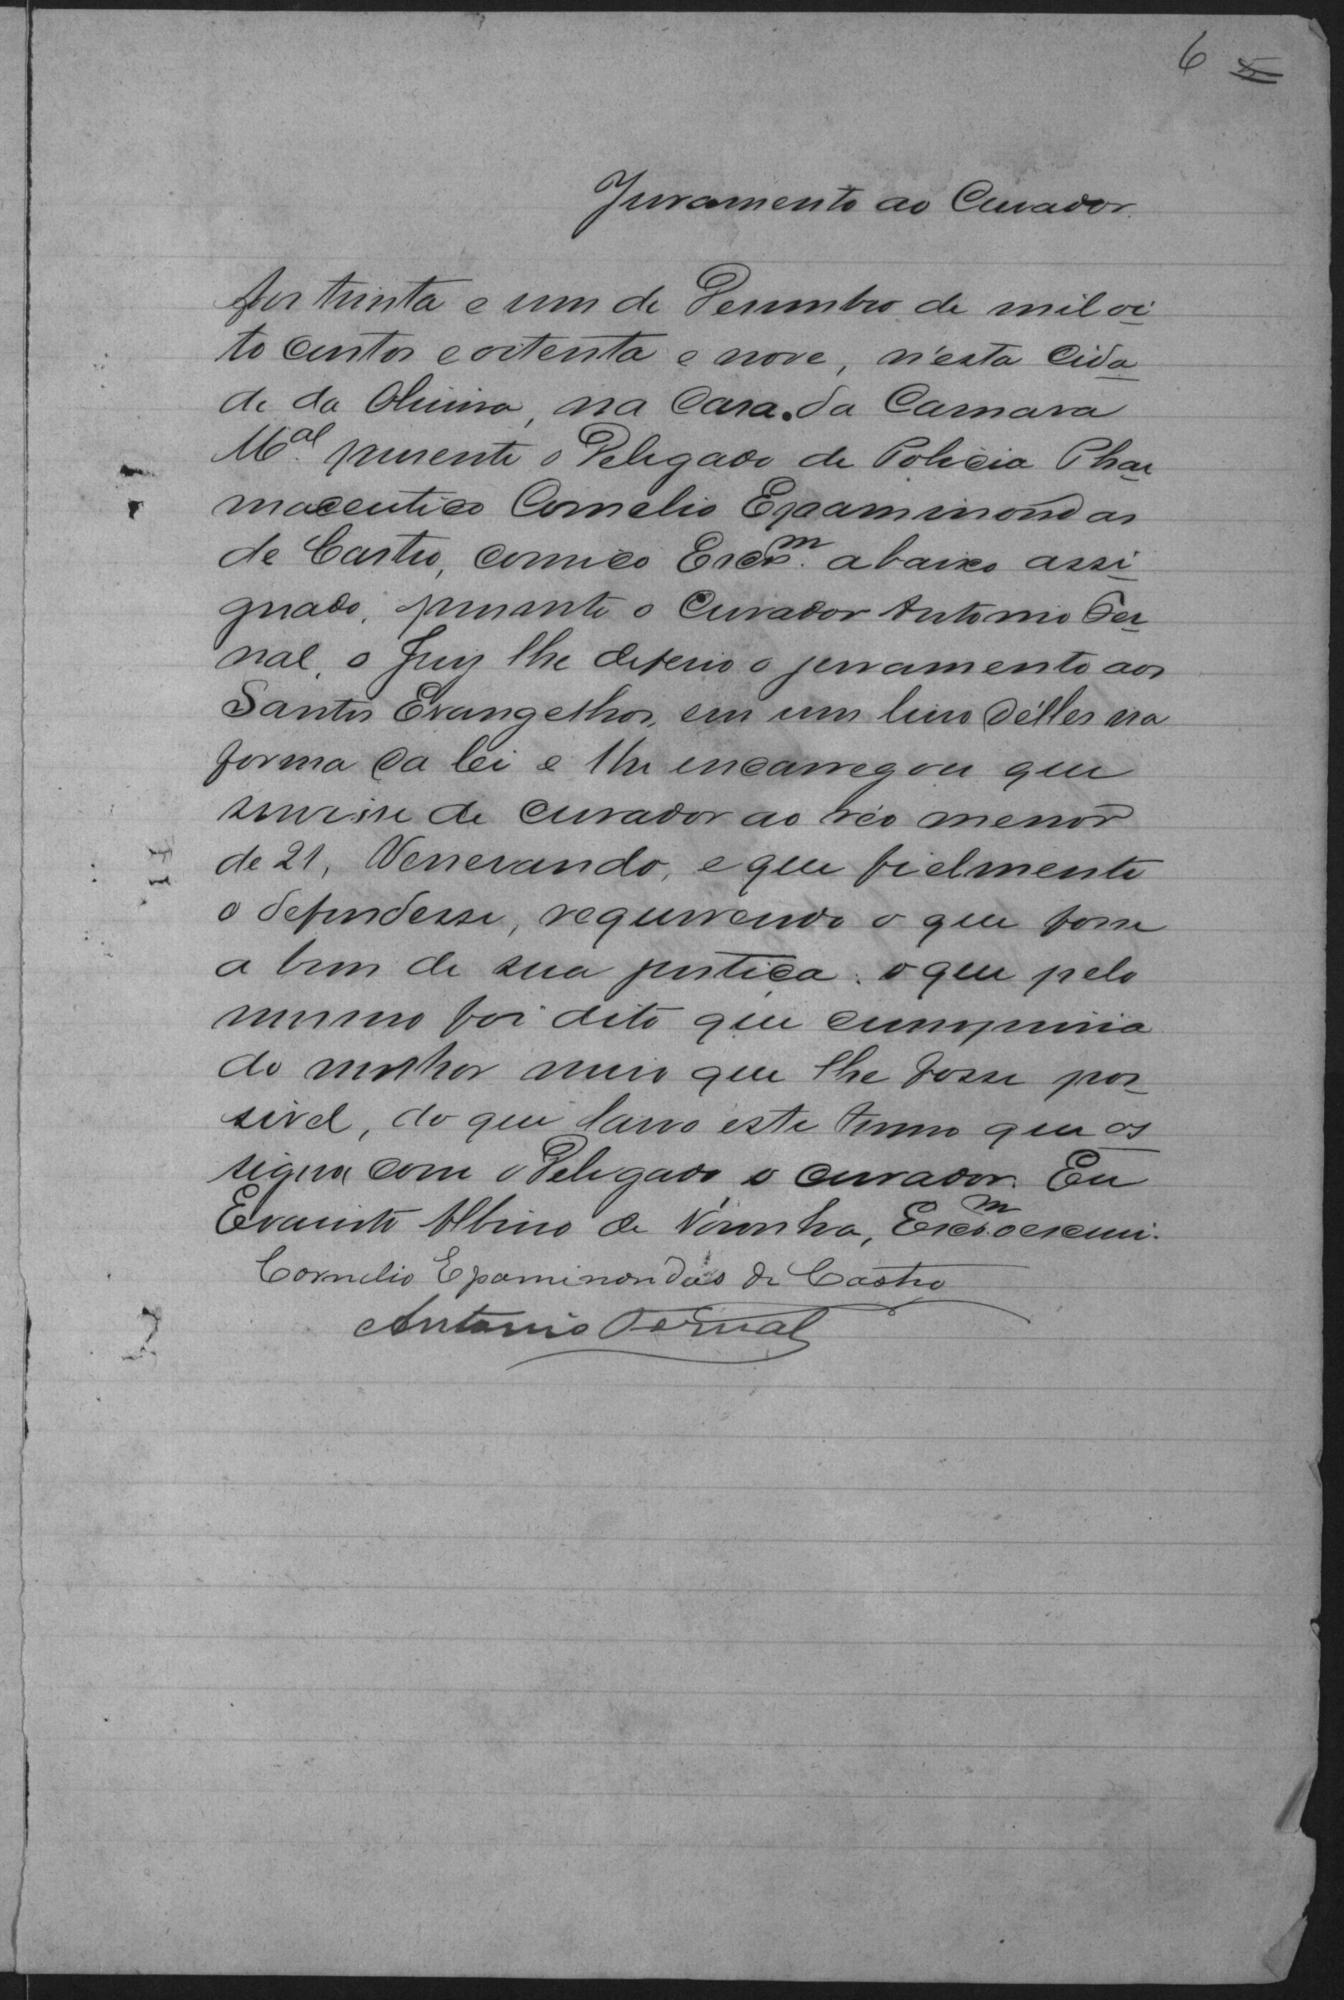 6 5
Juramento ao Curador
Aos trinta e um de Dezembro de mil oi-
to centos e oitenta e nove, n'esta Cida-
de da Oliveira, na Casa da Camara
M.al presente o Delegado de Policia Phar-
maceutico Cornelio Epaminondas
de Castro, comigo Escr.m abaixo assi-
gnado, presente o Curador Antonio Ber-
nal, o Juiz lhe deferio o juramento aos
Santos Evangelhos, em um livro d'elles na
forma da lei e lhe encarregou que
servisse de curador ao réo menor
de 21, Venerando, e que fielmente
o defendesse, requerendo o que fosse
a bem de sua justiça. o que pelo
mesmo foi dito que cumpriria
do melhor meio que lhe fosse pos-
sivel, do que lavro este termo que as
signa com o Delegado o curador. Eu
Evaristo Albino de Noronha, Escr.m o escrevi.
Cornelio Epaminondas de Castro
Antonio Bernal